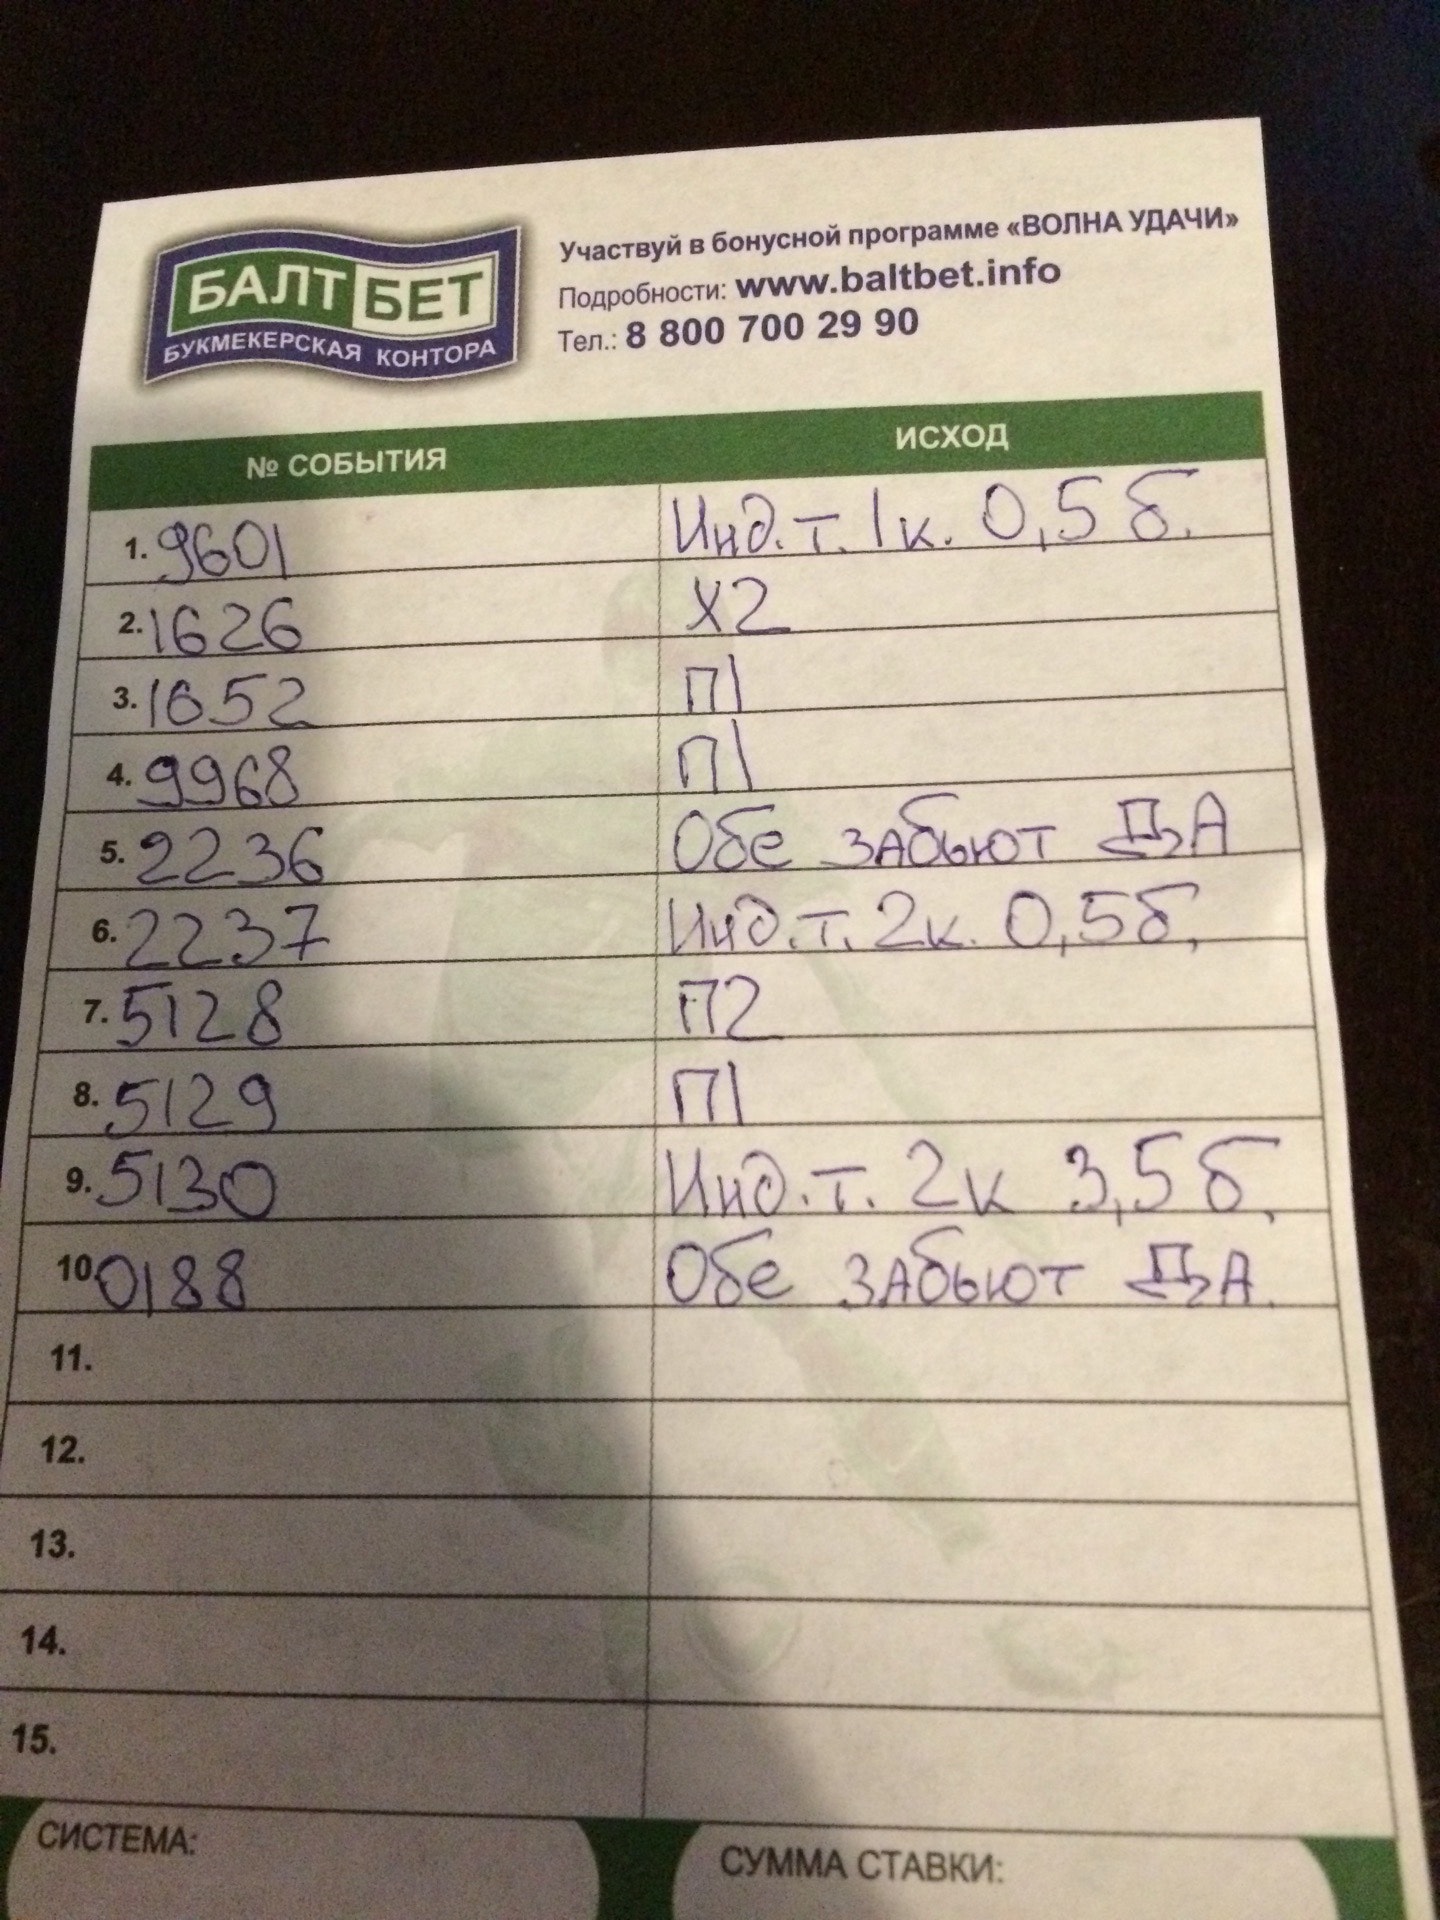 БАЛТ БЕТ
БУКМЕКЕРСКАЯ КОНТОРА
Участвуй в бонусной программе «ВОЛНА УДАЧИ»
Подробности: www.baltbet.info
Тел.: 8 800 700 29 90
№ СОБЫТИЯ ИСХОД
1. 9601 Инд.т. 1к. 0,5 б.
2. 1626 Х2
3. 1652 П1
4. 9968 П1
5. 2236 Обе забьют ДА
6. 2237 Инд.т. 2к. 0,5б.
7. 5128 П2
8. 5129 П1
9. 5130 Инд.т. 2к 3,5б.
10 0188 Обе забьют ДА.
11.
12.
13.
14.
15.
СИСТЕМА: СУММА СТАВКИ: